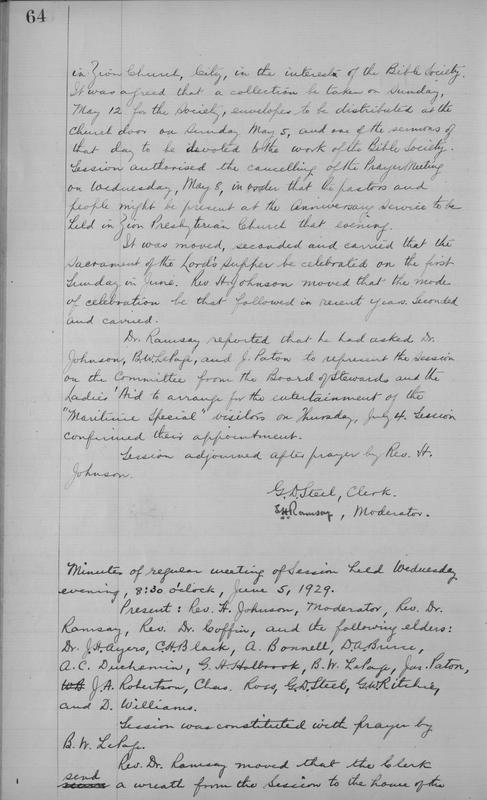 64
in Zion Church, City, in the interests of the Bible Society.
It was agreed that a collection be taken on Sunday,
May 12 for the Society, envelopes to be distributed at the
Church door on Sunday May 5, and one of the sermons of
that day to be devoted to the work of the Bible Society.
Session authorised the cancelling of the Prayer Meeting
on Wednesday, May 8, in order that the pastors and
people might be present at the Anniversary Service to be
held in Zion Presbyterian Church that evening.
It was moved, seconded and carried that the
Sacrament of the Lord's Supper be celebrated on the first
Sunday in June. Rev. H. Johnson moved that the mode
of celebration be that followed in recent years. Seconded
and carried.
Dr. Ramsay reported that he had asked Dr.
Johnson, B.W. LePage, and J. Paton to represent the Session
on the Committee from the Board of Stewards and the
Ladies' Aid to arrange for the entertainment of the
"Maritime Special" visitors on Thursday, July 4. Session
confirmed their appointment.
Session adjourned after prayer by Rev. H.
Johnson.
G.D. Steel, Clerk.
Ramsay, Moderator.
Minutes of regular meeting of Session held Wednesday
evening, 8:30 o'clock, June 5, 1929.
Present: Rev. H. Johnson, Moderator, Rev. Dr.
Ramsay, Rev. Dr. Coffin, and the following elders:
Dr. J.H. Ayers, C.H. Black, A. Bonnell, D.A. Bruce,
A.C. Duchemin, G.H. Holbrook, B.W. LePage, Jas. Paton,
J.A. Robertson, Chas. Ross, G.D. Steel, G.W. Ritchie,
and D. Williams.
Session was constituted with prayer by
B.W. LePage.
Rev. Dr. Ramsay moved that the Clerk
send a wreath from the Session to the house of the